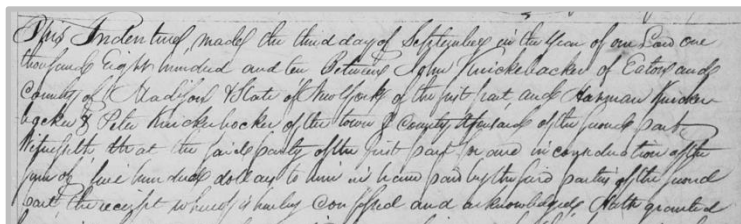 This Indenture, made the third day of September in the Year of our Lord one
thousand Eight Hundred and ten Between John Knickebacker of Eaton and
County of Madison & State of New York of the first part, and Harman Knicker
backer & Peter Knickerbocker of the town & County aforesaid of the second part,
Witnesseth, that the said party of the first part for and in consideration of the
sum of, five hundred dollars to him in hand paid by the said parties of the second
part, the receipt whereof is hereby Confessed and acknowledged, Hath granted